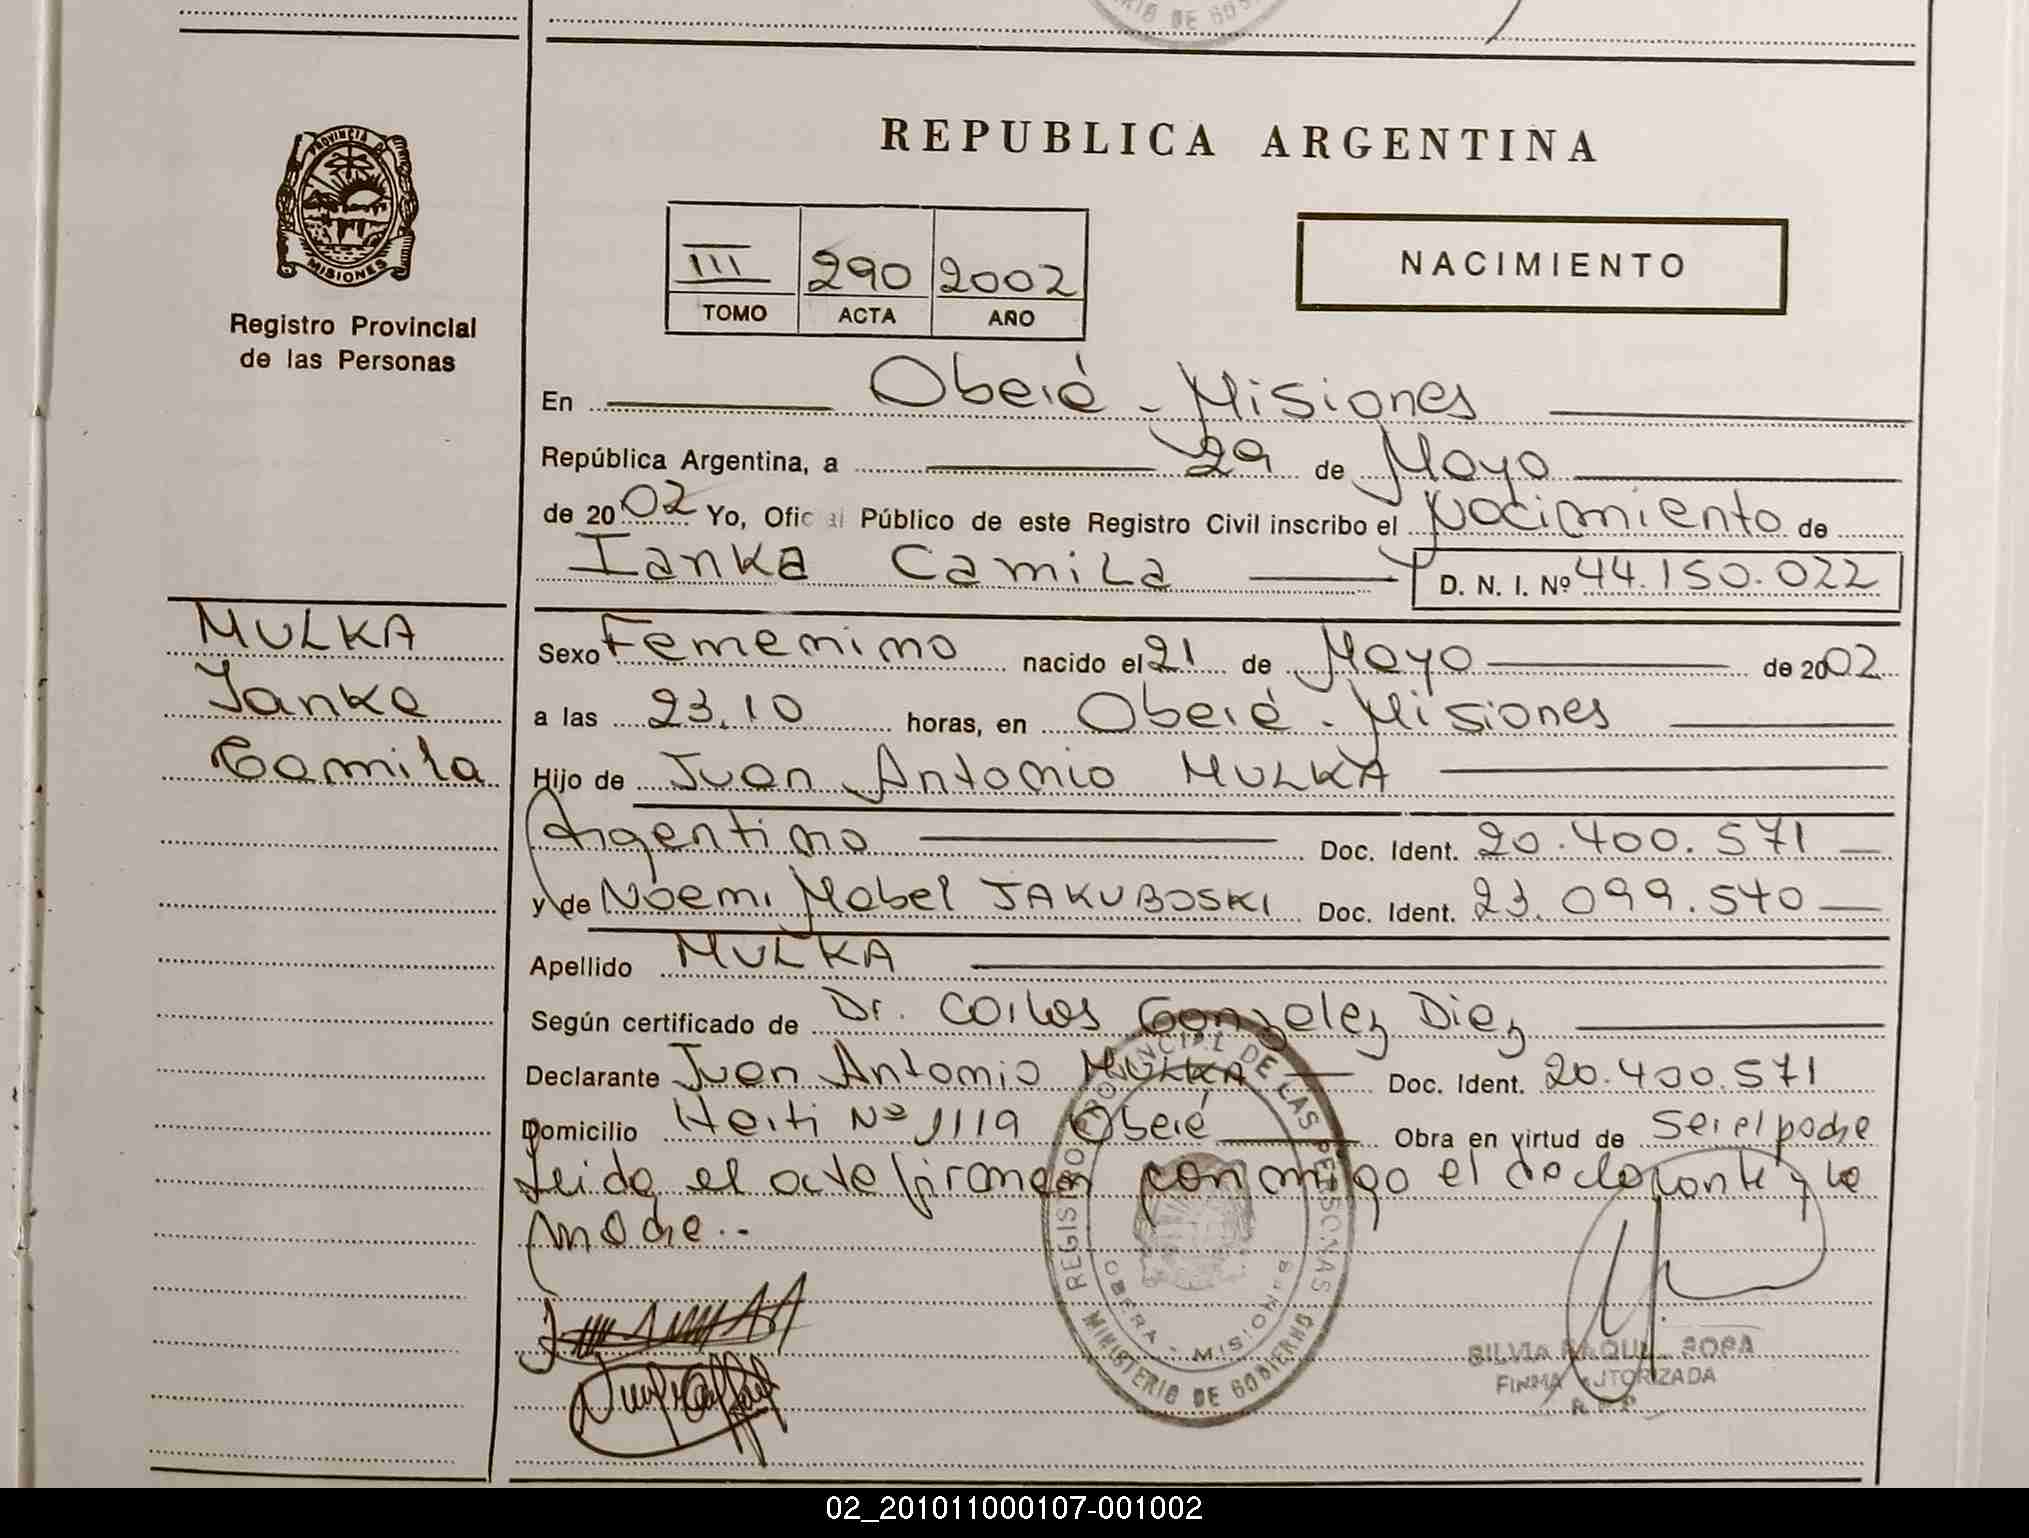 REPUBLICA ARGENTINA
PROVINCIA DE
MISIONES
Registro Provincial
de las Personas
III 290 2002
TOMO ACTA AÑO
NACIMIENTO
En Oberá - Misiones
República Argentina, a 29 de Mayo
de 2002 Yo, Oficial Público de este Registro Civil inscribo el Nacimiento de
Ianka Camila D. N. I. Nº 44.150.022
MULKA
Ianka
Camila
Sexo Femenino nacido el 21 de Mayo de 2002
a las 23.10 horas, en Oberá - Misiones
Hijo de Juan Antonio MULKA
Argentino Doc. Ident. 20.400.571
y de Noemi Mabel JAKUBOSKI Doc. Ident. 23.099.540
Apellido MULKA
Según certificado de Dr. Carlos Gonzalez Diez
Declarante Juan Antonio MULKA Doc. Ident. 20.400.571
Domicilio Haiti Nº 1119 Oberá Obra en virtud de Ser el padre
Leida el acta firman conmigo el declarante y la
madre..
REGISTRO PROVINCIAL DE LAS PERSONAS
OBERA - MISIONES
MINISTERIO DE GOBIERNO
SILVIA RAQUEL SOSA
FIRMA AUTORIZADA
02_201011000107-001002